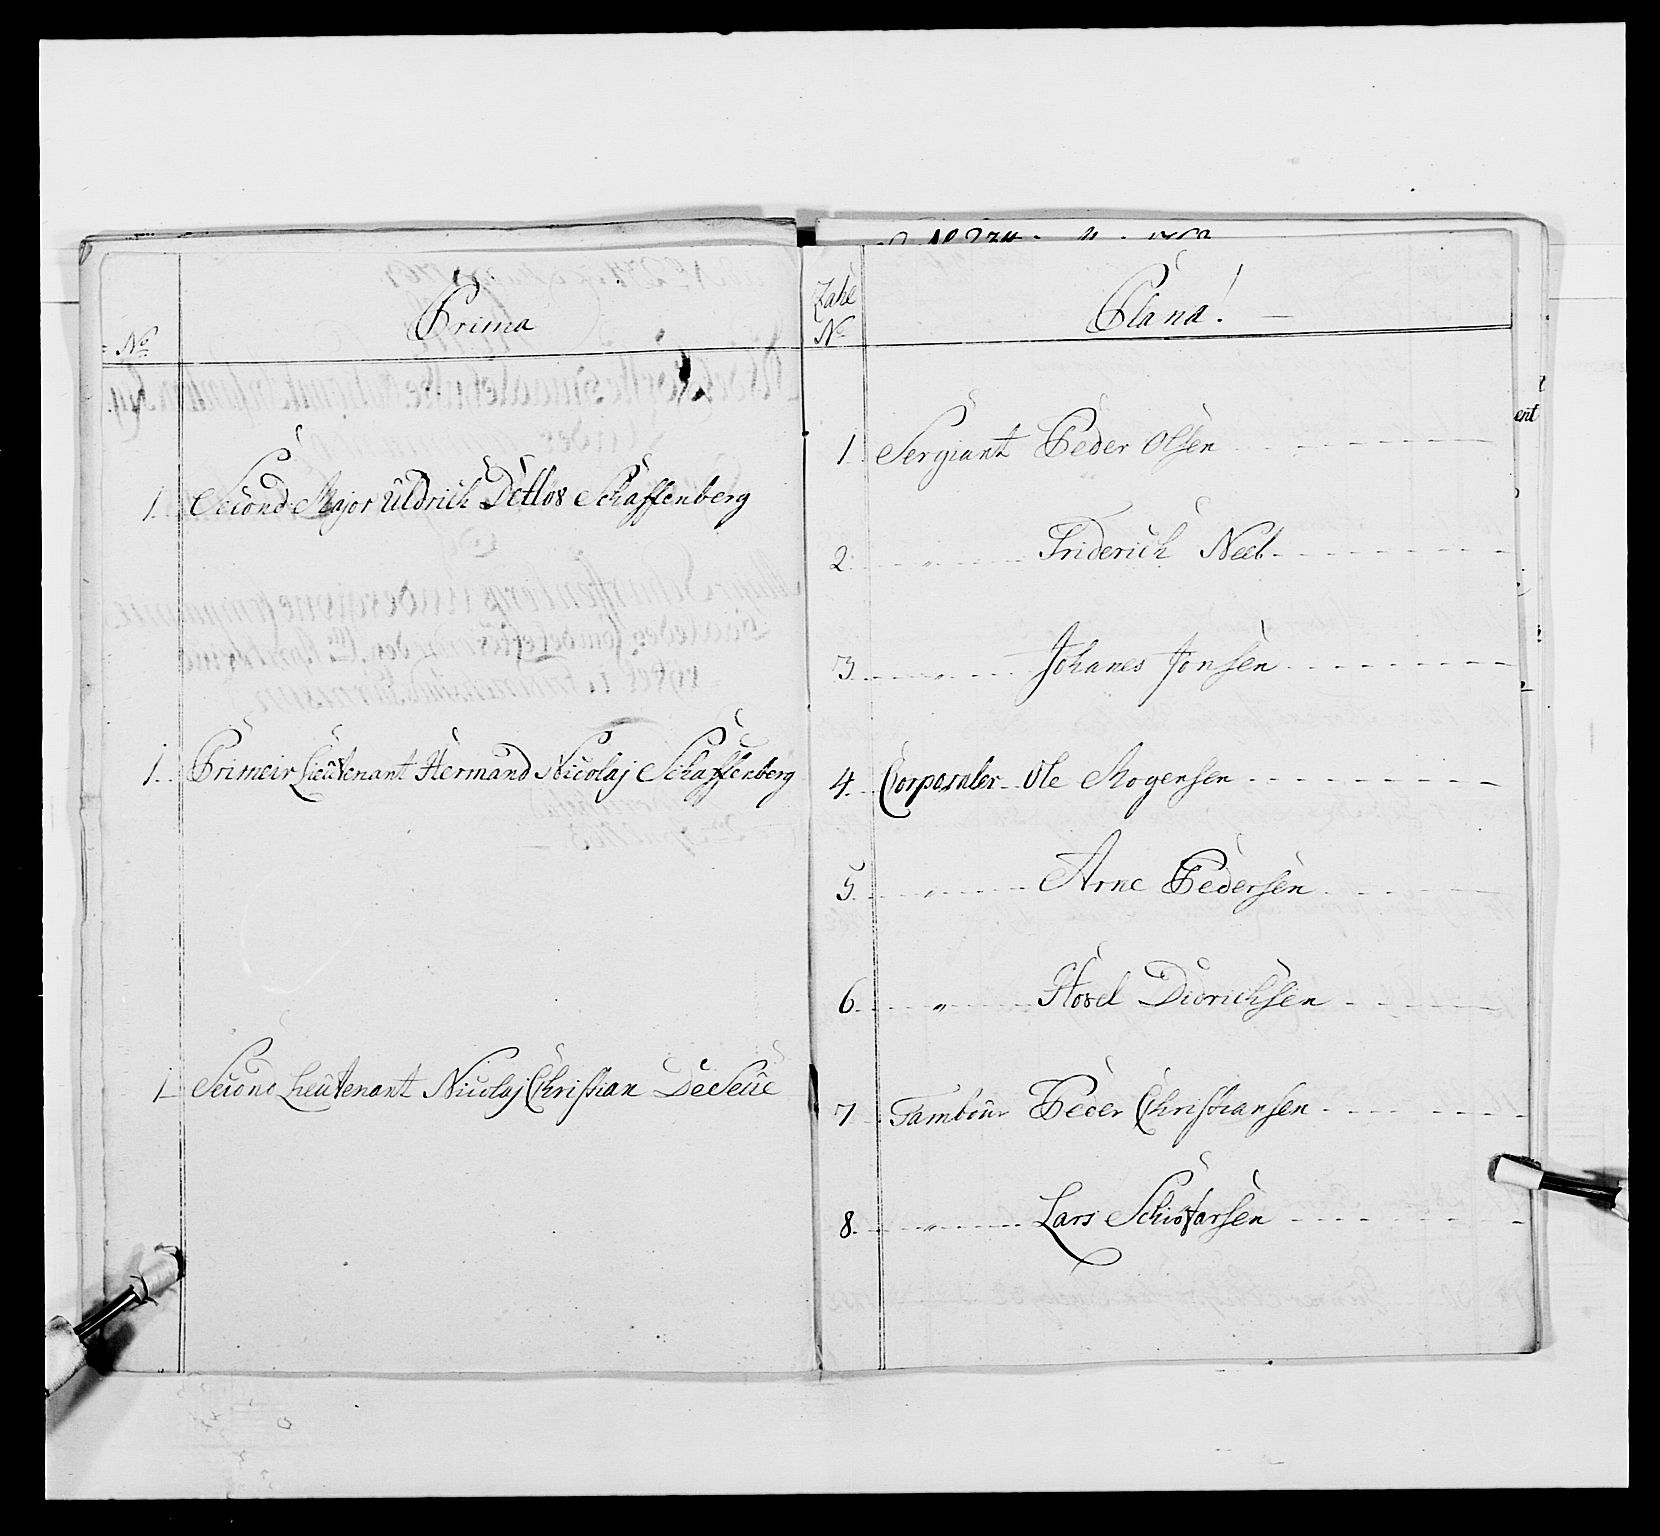 No
Prima
1. Second Major Uldrich Detlos Schaffenberg
1. Primeir Lieutenant Hermand Nicolaj Schaffenberg
1 Second Lieutenant Nicolaj Christian DeSeüe
Zahl
No
Plana!
1 Sergiant Peder Olsen
2 " Friderich Neel
3 " Johanes Jonsen
4. Corporaler Ole Mogensen
5. " Arne Pedersen
6. " Didrichsen
7 Tambour Peder Christiansen
8. " Lars